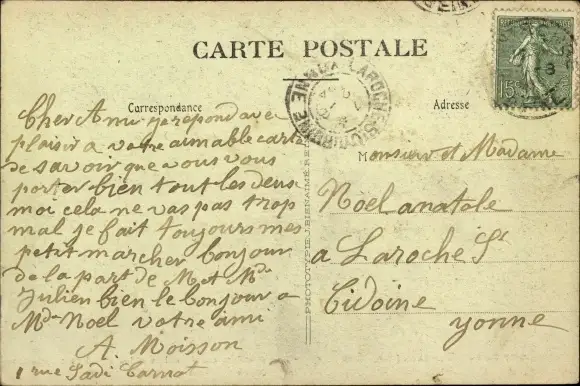 CARTE POSTALE
Correspondance
Adresse
Cher Ami je repond avec
plaisir a votre aimable carte
de savoir que vous vous
porter bien tout les deux
moi cela ne vas pas trop
mal je fait toujours mes
petit marcher bonjour
de la part de M et Me
Julien bien le bonjour a
Mde Noel votre ami
A. Moisson
1 rue Sadi Carnot
Monsieur et Madame
Nöel anatole
a Laroche St
Cidoine
yonne
15c